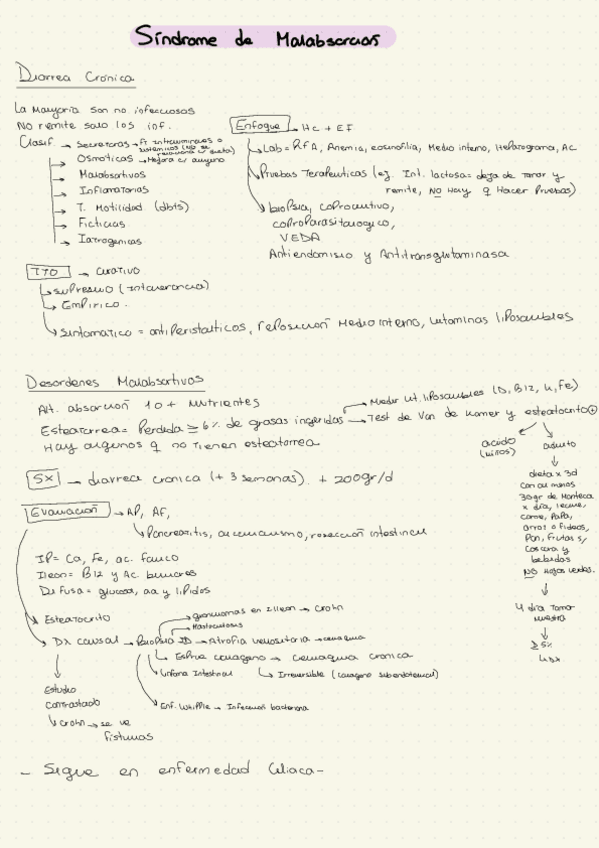 Síndrome de Malabsorcion
Diarrea Cronica
La Mayoría son no infecciosos
No remite salo los inf.
Clasif → Secretoras →
→ Osmoticas → Mejora c/ ayuno
→ Malabsortivos
→ Inflamatorias
→ T. Motilidad (dbts)
→ Ficticias
→ Iatrogenicas
Enfoque → Hc + EF
→ Lab = RFA, Anemia, eosinofilia, Medio interno, Hepatograma, AC
→ Pruebas Terapeuticas (ej. Int. lactosa = deja de tomar y
remite, NO Hay q Hacer Pruebas)
→ biopsia, coprocultivo,
coproparasitologico,
VEDA
Antiendomisio y Antitransglutaminasa
TTO → curativo
→ supresivo (intolerancia)
→ Empirico.
→ Sintomatico = antiperistalticos, reposicion Medio interno, vitaminas liposolubles
Desordenes Malabsortivos
Alt. absorcion 1 o + nutrientes
Esteatorrea = Perdida ≥ 6% de grasas ingeridas → Test de Van de Kamer y esteatocrito ⊕
→ Medir vit. liposolubles (D, B12, K, Fe)
Hay algunos q no tienen esteatorrea
acido
(niños)
adulto
dieta x 3d
con al menos
30gr de Manteca
x dia, leche,
carne, papa,
arroz o fideos,
Pan, frutas s/
cascara y
bebidas
NO hojas verdes.
4 dia tomar
muestra
≥ 5%
Sx → diarrea cronica (+ 3 semanas) + 200gr/d
Evaluacion → AP, AF,
→ Pancreatitis, alcoholismo, reseccion intestinal
IP = Ca, Fe, ac. folico
Ileon = B12 y Ac. biliares
Difusa = glucosa, aa y lipidos
→ Esteatocrito
→ Dx causal → Biopsia ID → Atrofia vellositaria → celiaquia
→ granulomas en ileon → Crohn
→ Mastocitosis
→ Esprue colageno → celiaquia cronica
→ Irreversible (colageno subendotelial)
→ linfoma Intestinal
→ Enf. Whipple → Infeccion bacteriana
Estudio
Contrastado
→ Crohn → se ve
fistulas
- Sigue en enfermedad Celiaca -